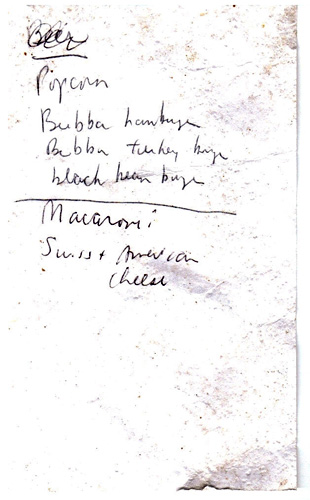 Beer
Popcorn
Bubba hamburger
Bubba turkey burger
black bean burger
Macaroni
Swiss + American
cheese